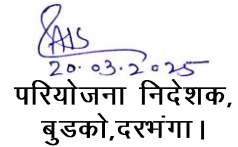 20.03.2025
परियोजना निदेशक,
बुडको,दरभंगा।